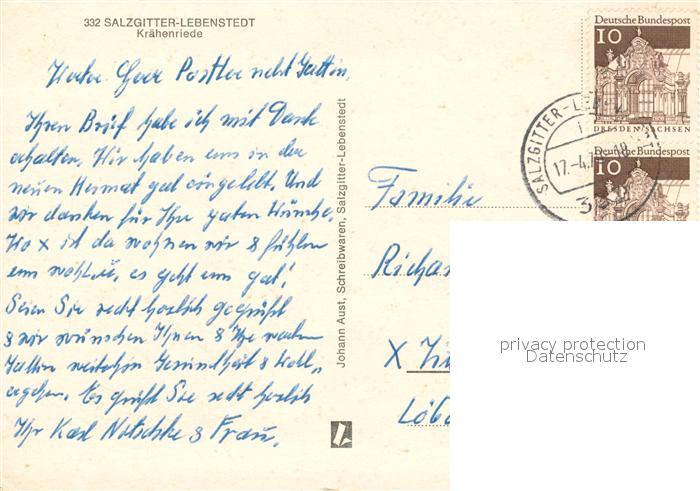 332 SALZGITTER-LEBENSTEDT
Krähenriede
Werter Herr Postler nebst Gattin,
Ihren Brief habe ich mit Dank
erhalten. Wir haben uns in der
neuen Heimat gut eingelebt. Und
wir danken für Ihre guten Wünsche.
Wo x ist da wohnen wir & fühlen
uns wohl es geht uns gut!
Seien Sie recht herzlich gegrüßt
& wir wünschen Ihnen & Ihrer werten
Gattin weiterhin Gesundheit & Wohl„
ergehen. Es grüßt Sie recht herzlich
Ihr Karl Nitschke & Frau.
Johann Aust, Schreibwaren, Salzgitter-Lebenstedt
Deutsche Bundespost
10
DRESDEN/SACHSEN
Deutsche Bundespost
10
SALZGITTER-LEBEN
17.-4.
Familie
Richar
X
Löba
privacy protection
Datenschutz